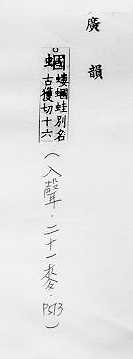 廣韻
蟈
螻蟈蛙別名
古獲切十六
(入聲．二十一麥．P513)